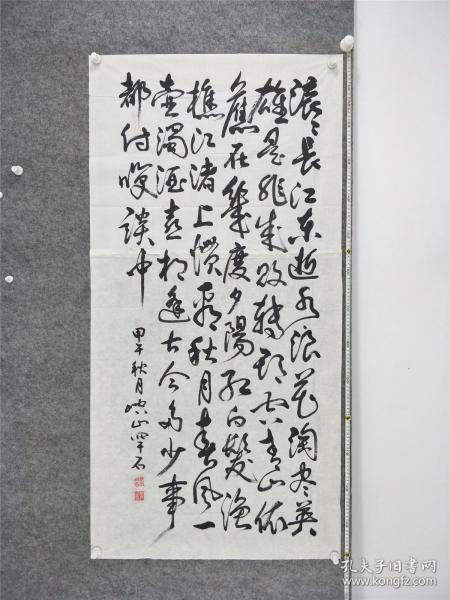 滚〻長江东逝水浪花淘尽英
雄是非成敗轉头空青山依
舊在幾度夕陽红白髮渔
樵江渚上惯看秋月春风一
壶濁酒喜相逢古今多少事
都付咲談中
甲午秋月
孔夫子旧书网
www.kongfz.com